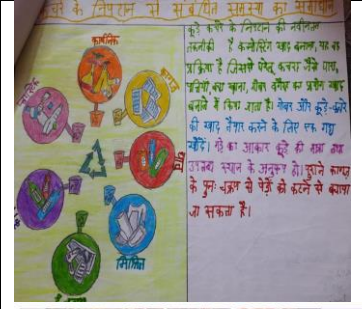 कचरे के निपटान से संबंधित समस्या का समाधान
कार्बनिक
कागज
मिश्रित
कूड़े कचरे के निपटान की नवीनतम
तकनीकी है कम्पोस्टिंग खाद बनाना, यह वह
प्रक्रिया है जिसमें घरेलू कचरा जैसे घास,
पत्तियाँ बचा खाना, गोबर वगैरा का प्रयोग खाद
बनाने में किया जाता है। गोबर और कूड़े-कचरे
की खाद तैयार करने के लिए एक गड्ढा
खोदें। गड्ढे का आकार कूड़े की मात्रा तथा
उपलब्ध स्थान के अनुरूप हो। पुराने कागज
के पुनः चक्रण से पेड़ों को कटने से बचाया
जा सकता है।